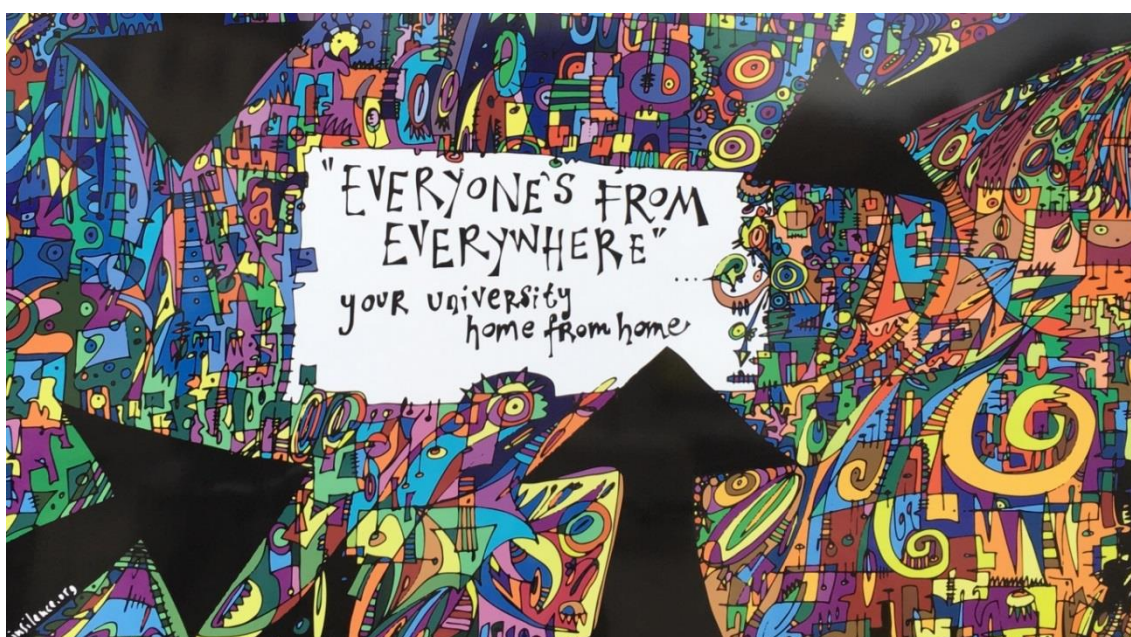 "EVERYONE'S FROM
EVERYWHERE"
your university
home from home